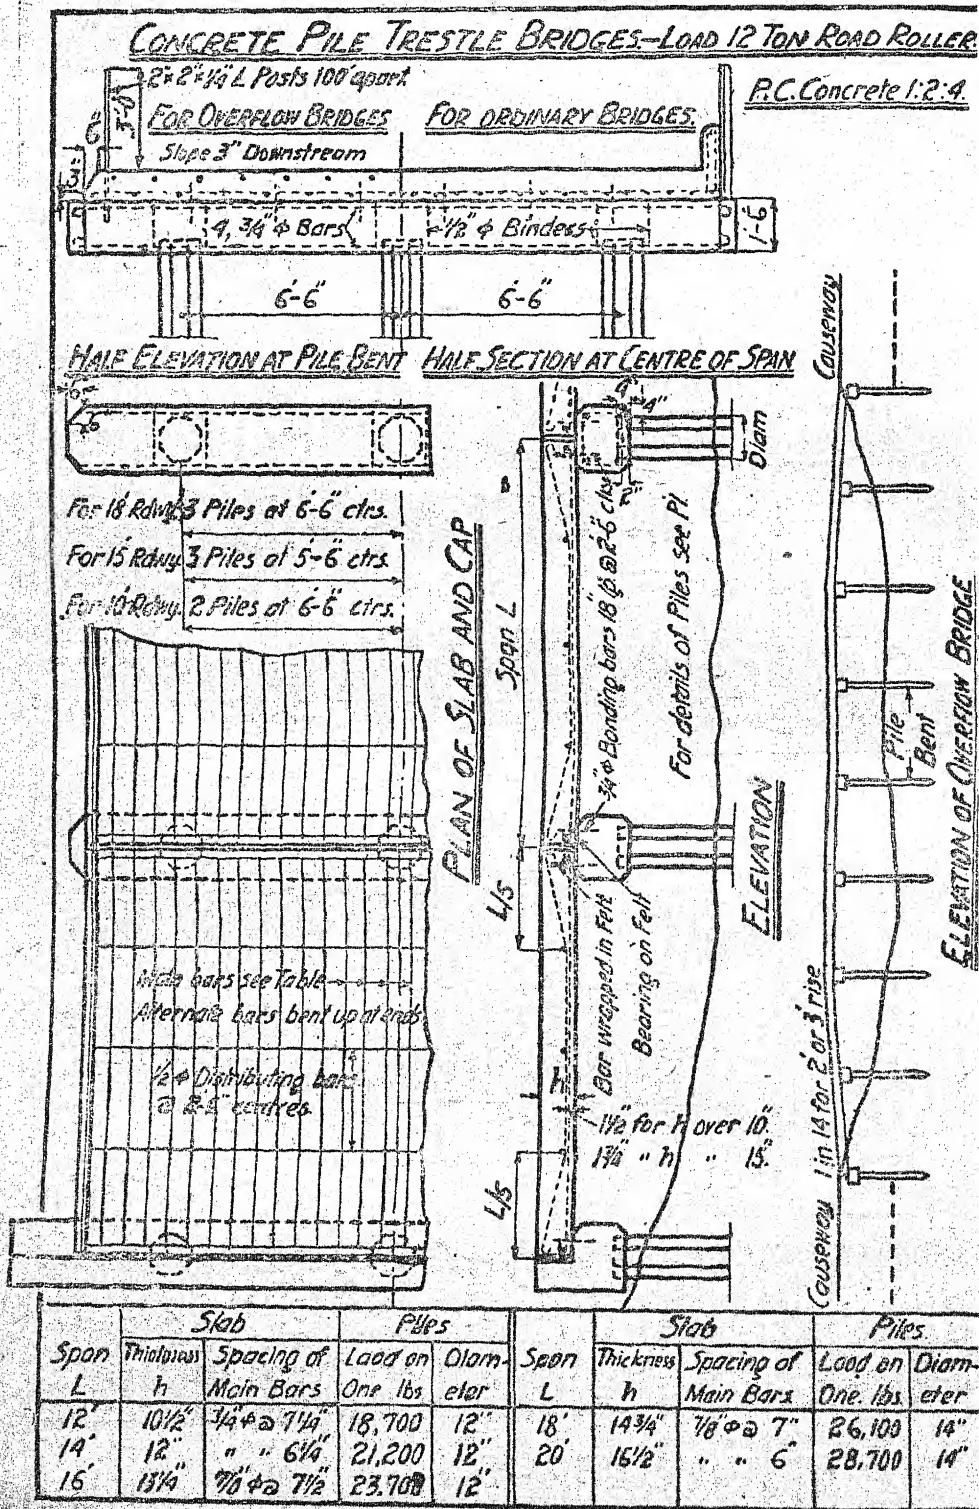 CONCRETE PILE TRESTLE BRIDGES.-LOAD 12 TON ROAD ROLLER
2"×2"×1/4" L Posts 100' apart
P.C. Concrete 1:2:4.
FOR OVERFLOW BRIDGES
FOR ORDINARY BRIDGES.
6"
3'-0"
Slope 3" Downstream
3"
4, 3/4" φ Bars
1/2" φ Binders
1'-6
6'-6"
6'-6"
HALF ELEVATION AT PILE BENT
HALF SECTION AT CENTRE OF SPAN
6"
For 18' Rdwy. 3 Piles at 6'-6" ctrs.
For 15' Rdwy. 3 Piles at 5'-6" ctrs.
For 10' Rdwy. 2 Piles at 6'-6" ctrs.
Main bars see Table
Alternate bars bent up at ends
1/2" φ Distributing bars
@ centres.
PLAN OF SLAB AND CAP
Span L
L/5
L/5
4"
4"
2"
Diam
3/4" φ Bonding bars 18" @ 2'-6" ctrs
For details of Piles see Pl.
Bar wrapped in Felt
Bearing on Felt
h
1½" for h over 10".
1¾" " h " 15".
ELEVATION
Causeway
Pile
Bent
Causeway 1 in 14 for 2' or 3' rise
ELEVATION OF OVERFLOW BRIDGE
Slab Piles Slab Piles.
Span Thickness Spacing of Load on Diam- Span Thickness Spacing of Load on Diam-
L h Main Bars One lbs eter L h Main Bars One. lbs. eter
12' 10½" 3/4" φ @ 7¼" 18,700 12" 18' 14¾" 7/8" φ @ 7" 26,100 14"
14' 12" " " 6¼" 21,200 12" 20' 16½" " " 6" 28,700 14"
16' 13¼" 7/8" φ @ 7½" 23,700 12"